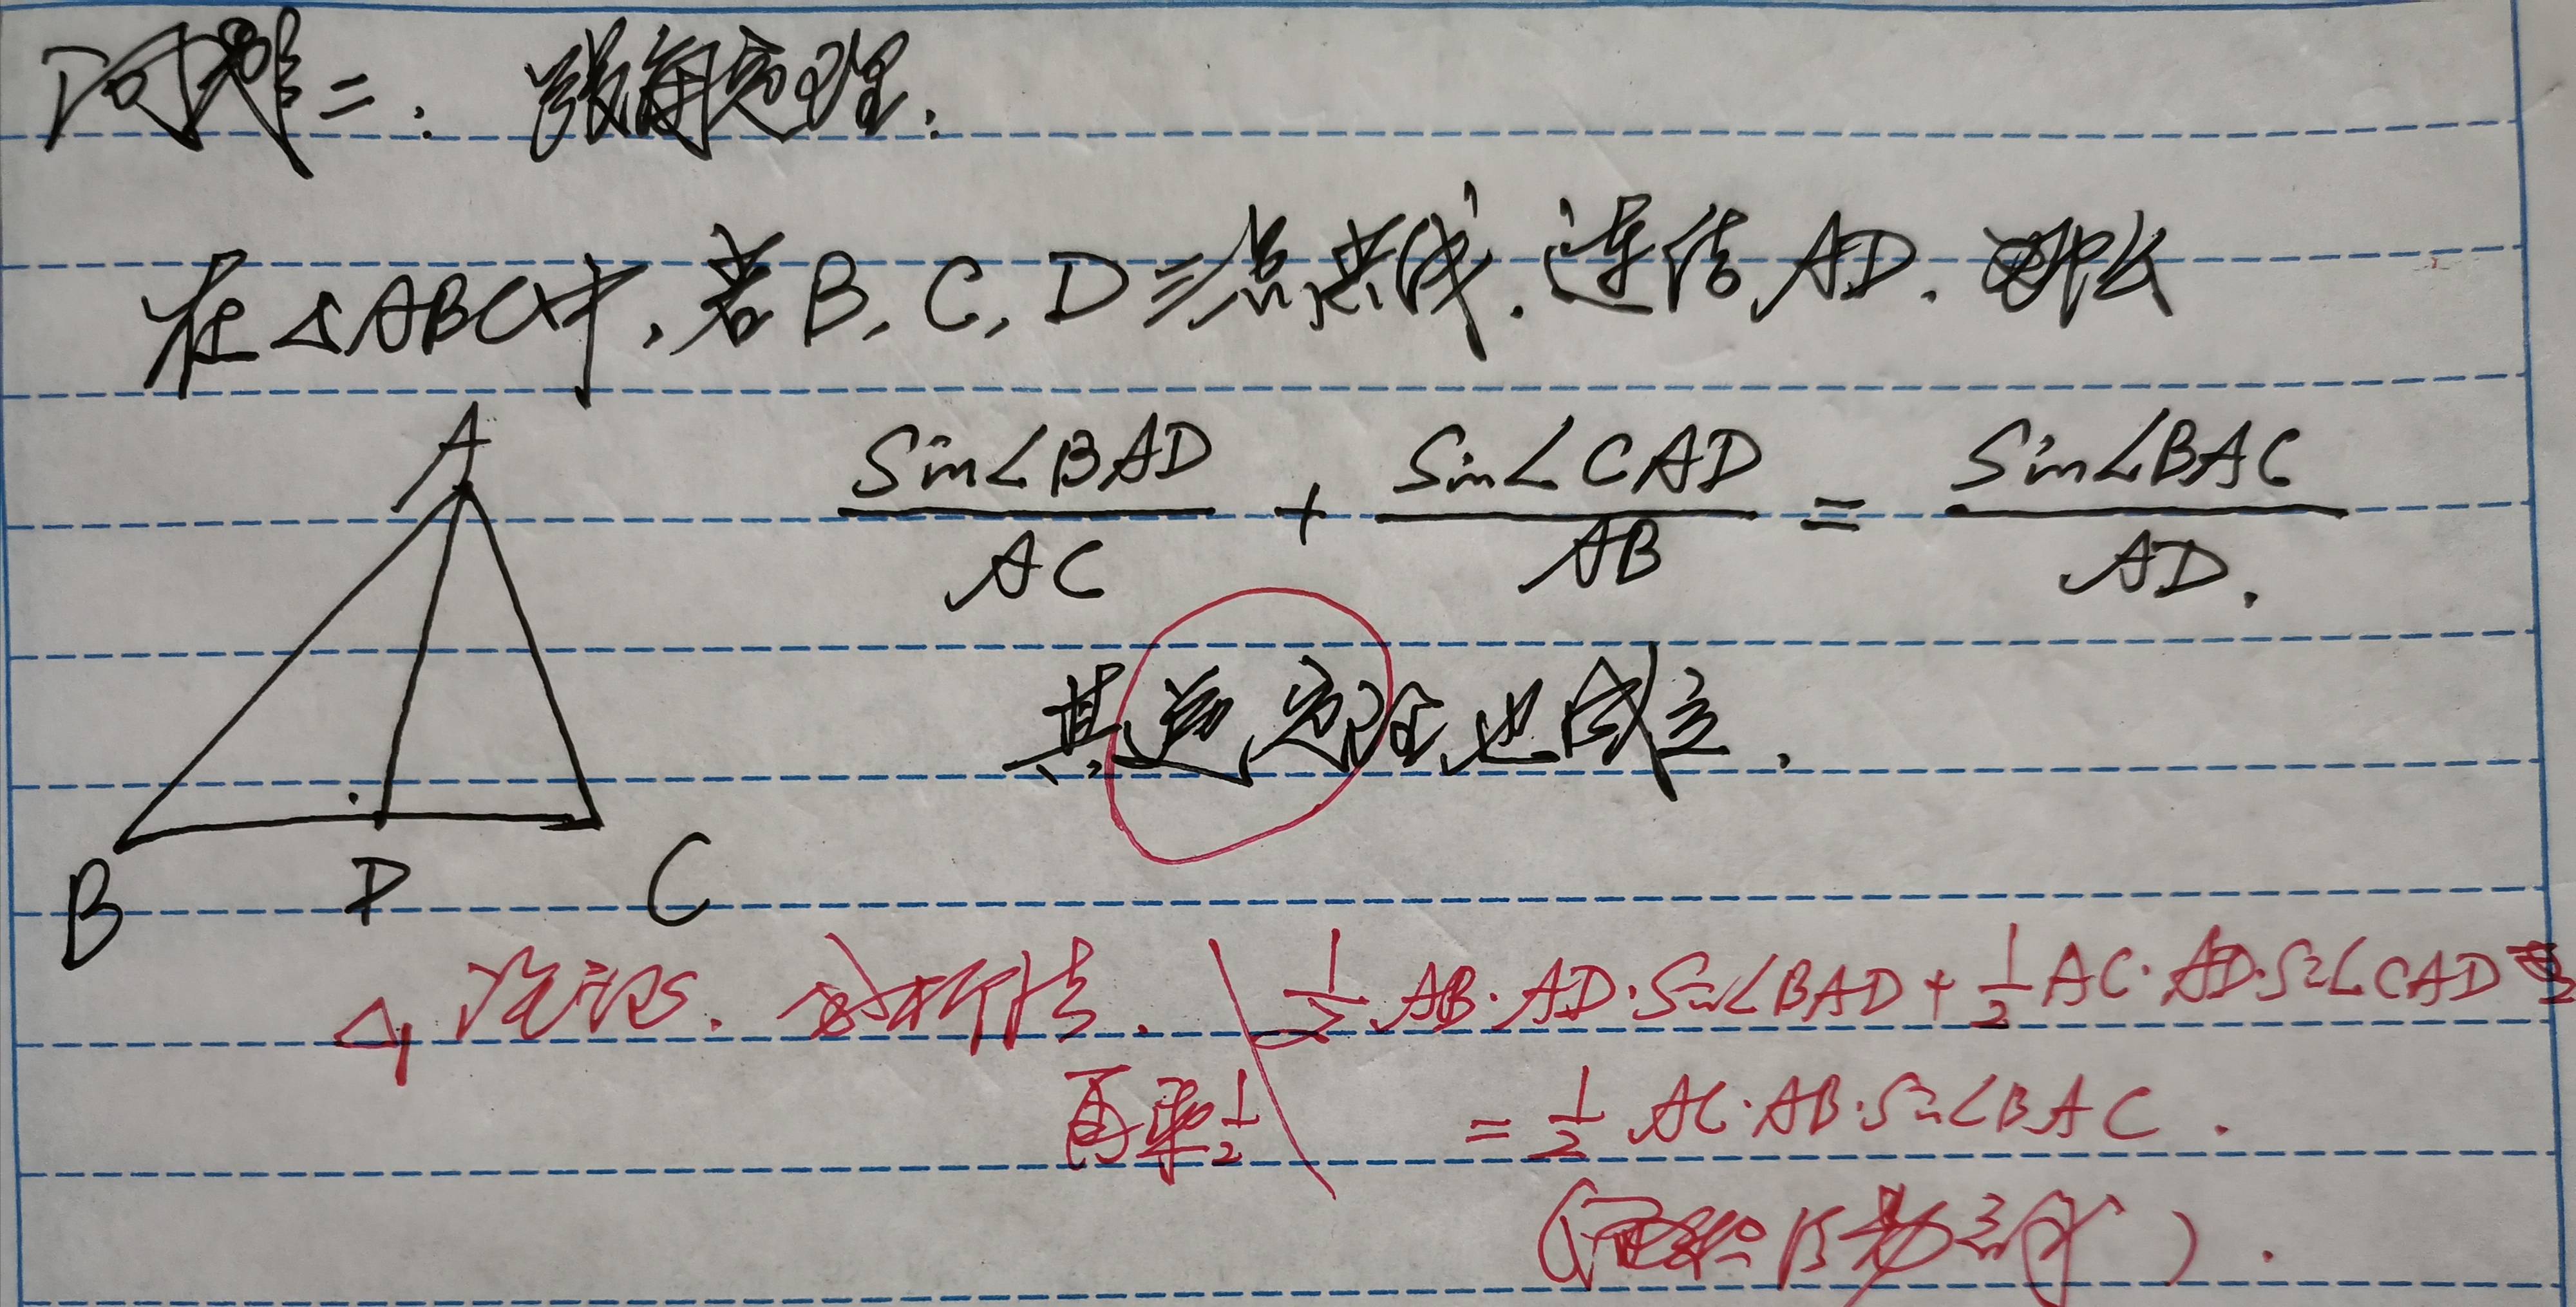 附录二：张角定理：
在△ABC中，若B，C，D三点共线，连结AD，那么
sin∠BAD/AC + sin∠CAD/AB = sin∠BAC/AD.
其逆定理也成立.
A
B D C
证明. 分析法.
1/2 AB·AD·Sin∠BAD + 1/2 AC·AD·Sin∠CAD
再乘1/2
= 1/2 AC·AB·Sin∠BAC.